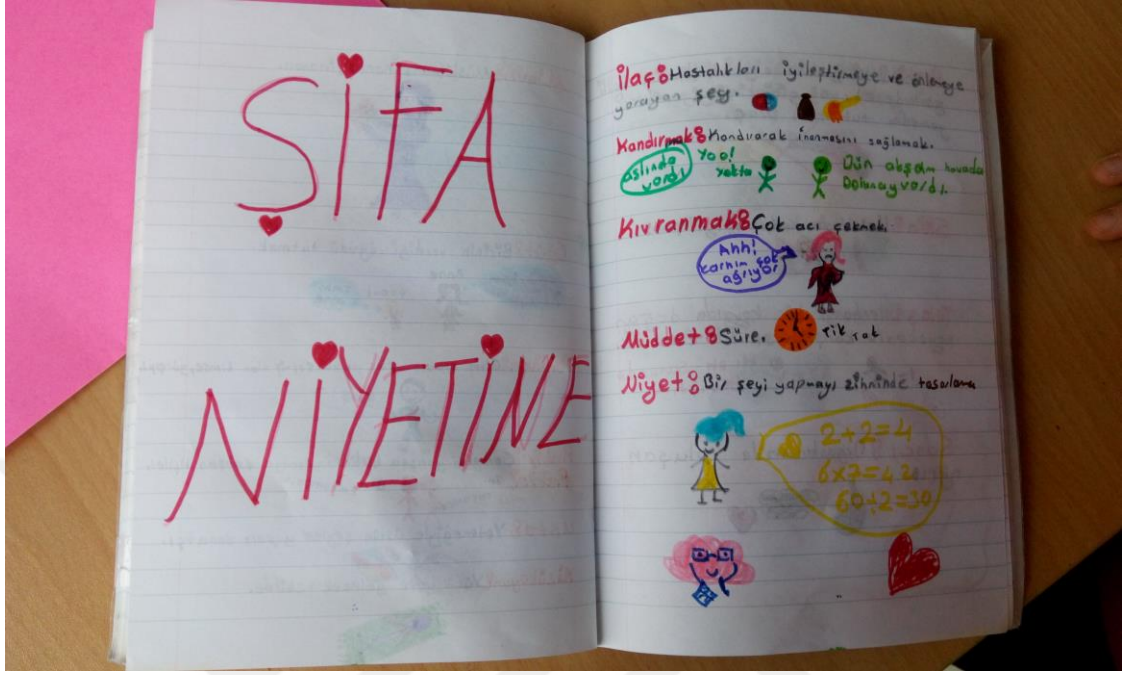 ŞİFA
NİYETİNE
İlaç: Hastalıkları iyileştirmeye ve önlemeye
yarayan şey.
Kandırmak: Kandırarak inanmasını sağlamak.
aslında
vardı
Yoo!
yokta
Dün akşam havada
Dolunay vardı.
Kıvranmak: Çok acı çekmek.
Ahh!
karnım çok
ağrıyor
Müddet: Süre.
Tik Tak
Niyet: Bir şeyi yapmayı zihninde tasarlama
2+2=4
6x7=42
60÷2=30